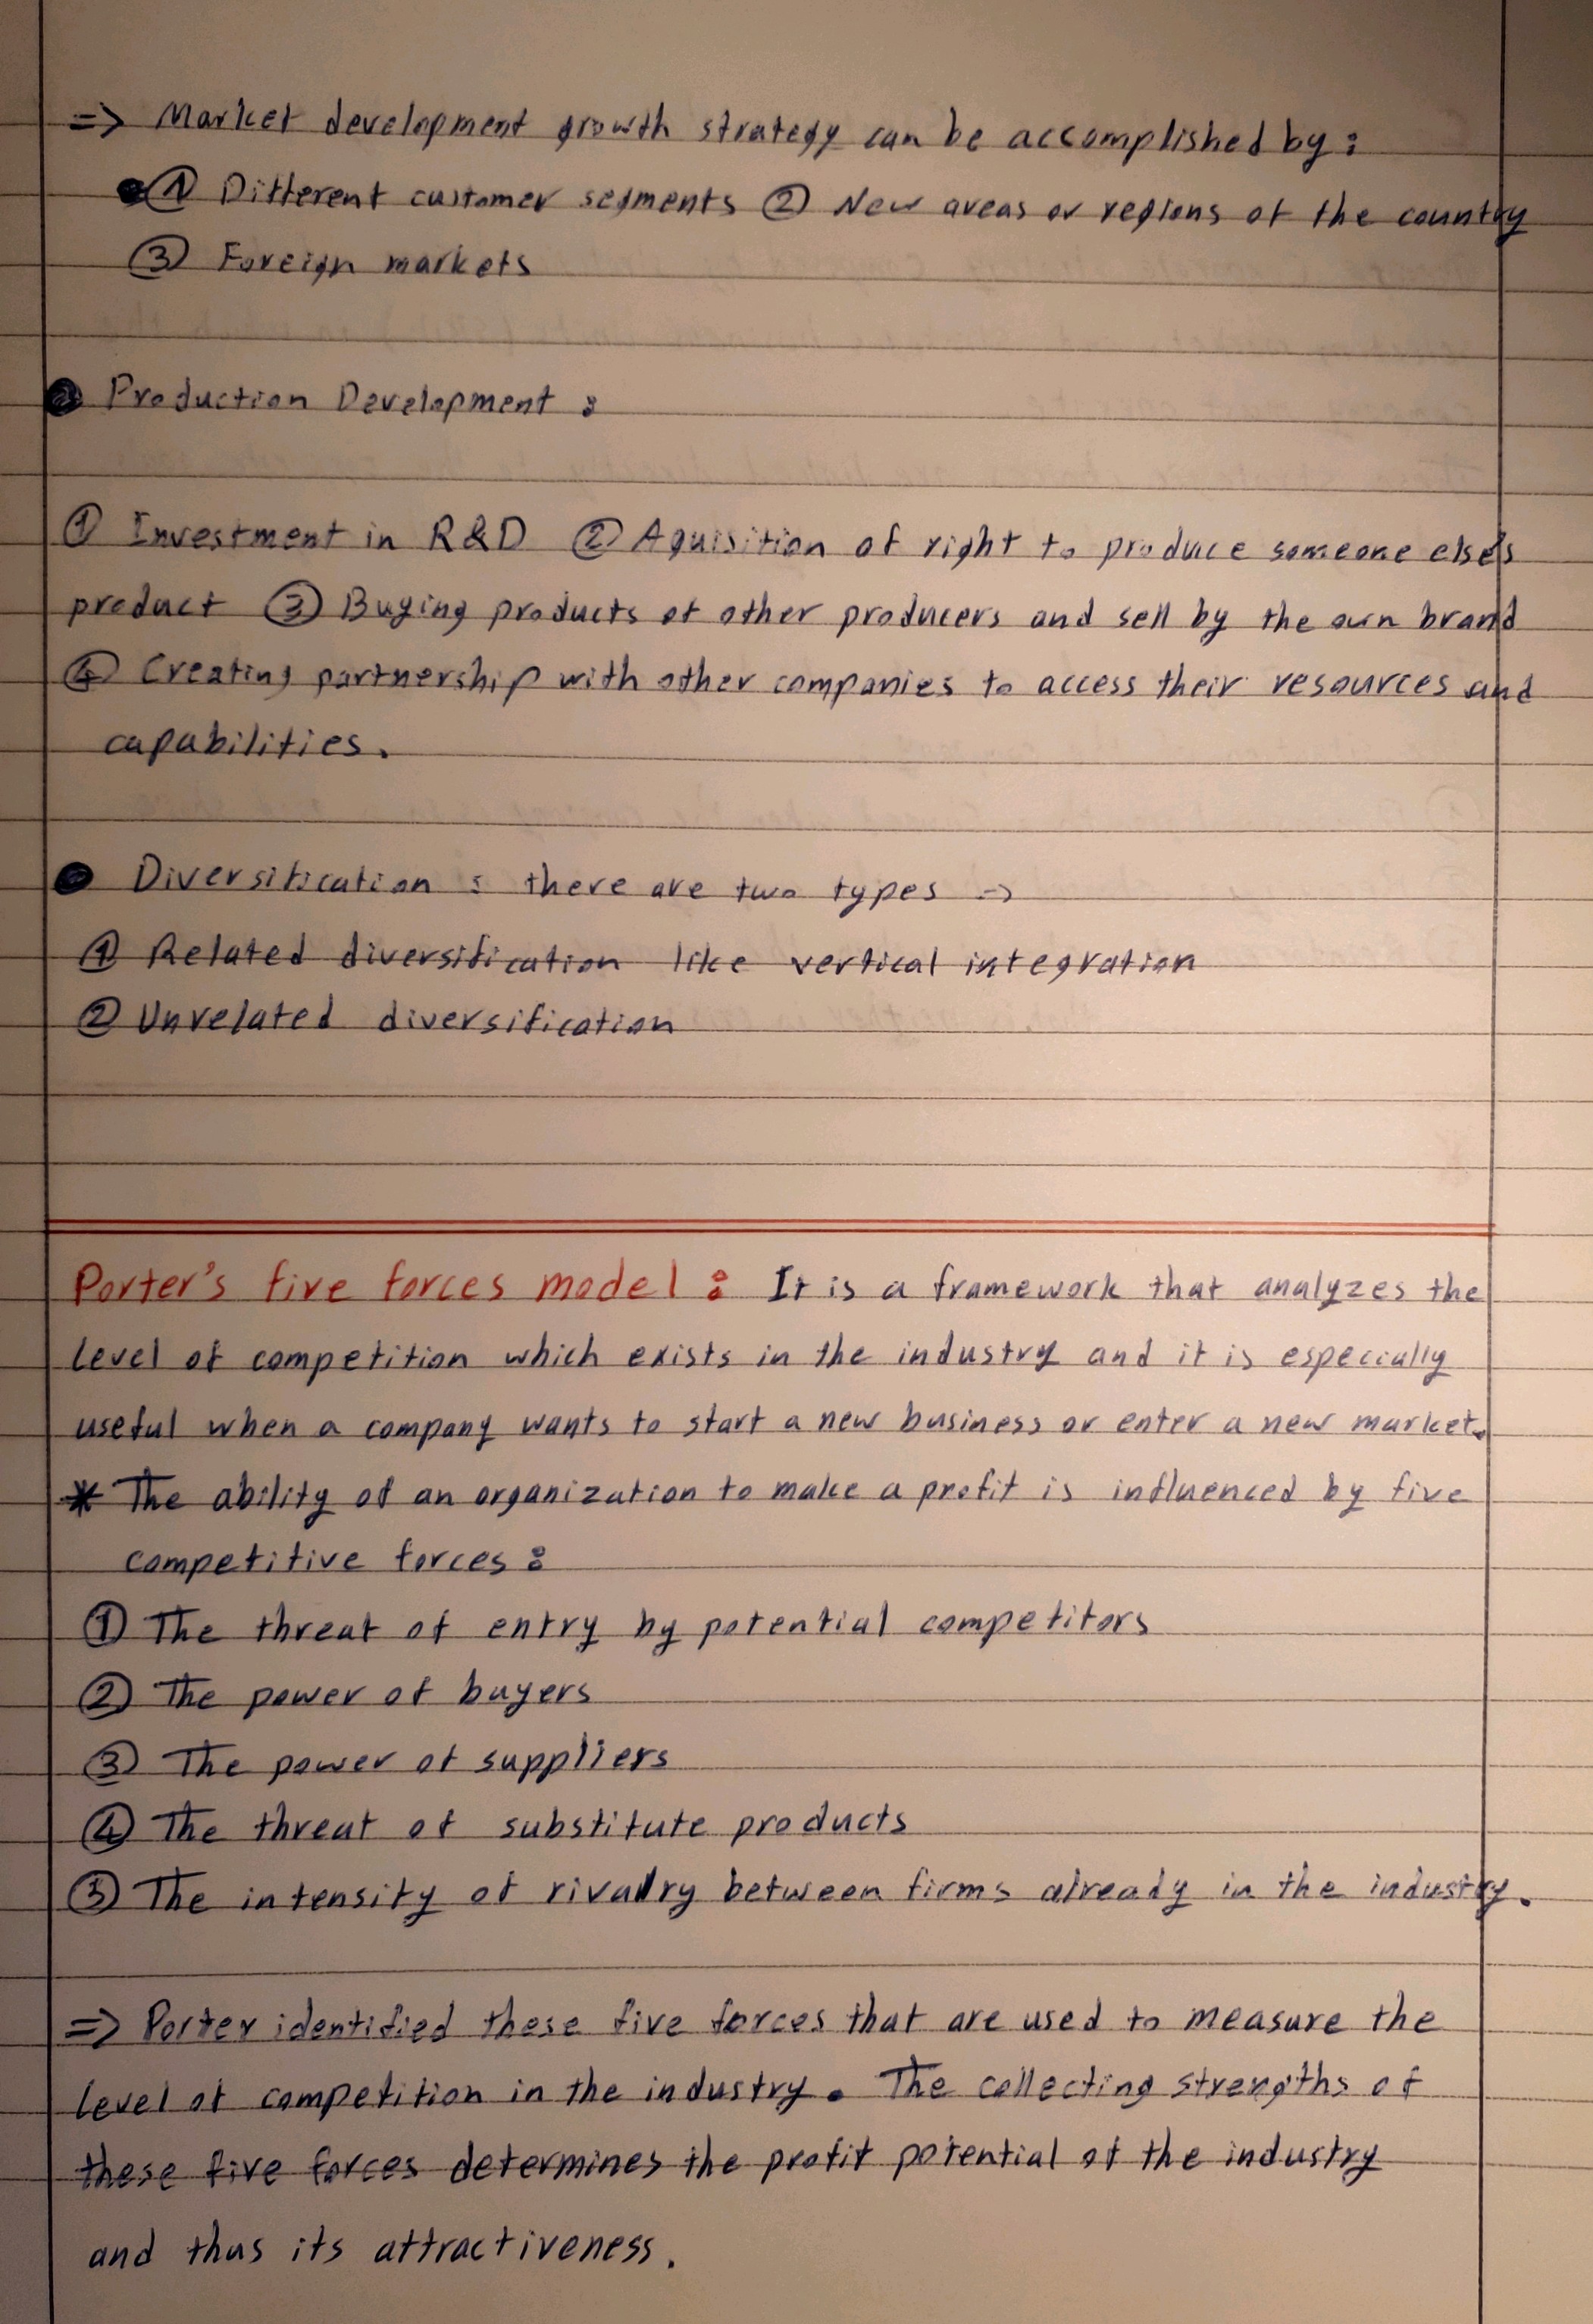 => Market development growth strategy can be accomplished by:
① Different customer segments ② New areas or regions of the country
③ Foreign markets
● Production Development :
① Investment in R&D ② Aquisition of right to produce someone else's
product ③ Buying products of other producers and sell by the own brand
④ Creating partnership with other companies to access their resources and
capabilities.
● Diversification : there are two types =>
① Related diversification like vertical integration
② Unrelated diversification
Porter's five forces model : It is a framework that analyzes the
level of competition which exists in the industry and it is especially
useful when a company wants to start a new business or enter a new market.
* The ability of an organization to make a profit is influenced by five
competitive forces :
① The threat of entry by potential competitors
② The power of buyers
③ The power of suppliers
④ The threat of substitute products
⑤ The intensity of rivalry between firms already in the industry.
=> Porter identified these five forces that are used to measure the
level of competition in the industry. The collecting strengths of
these five forces determines the profit potential of the industry
and thus its attractiveness.